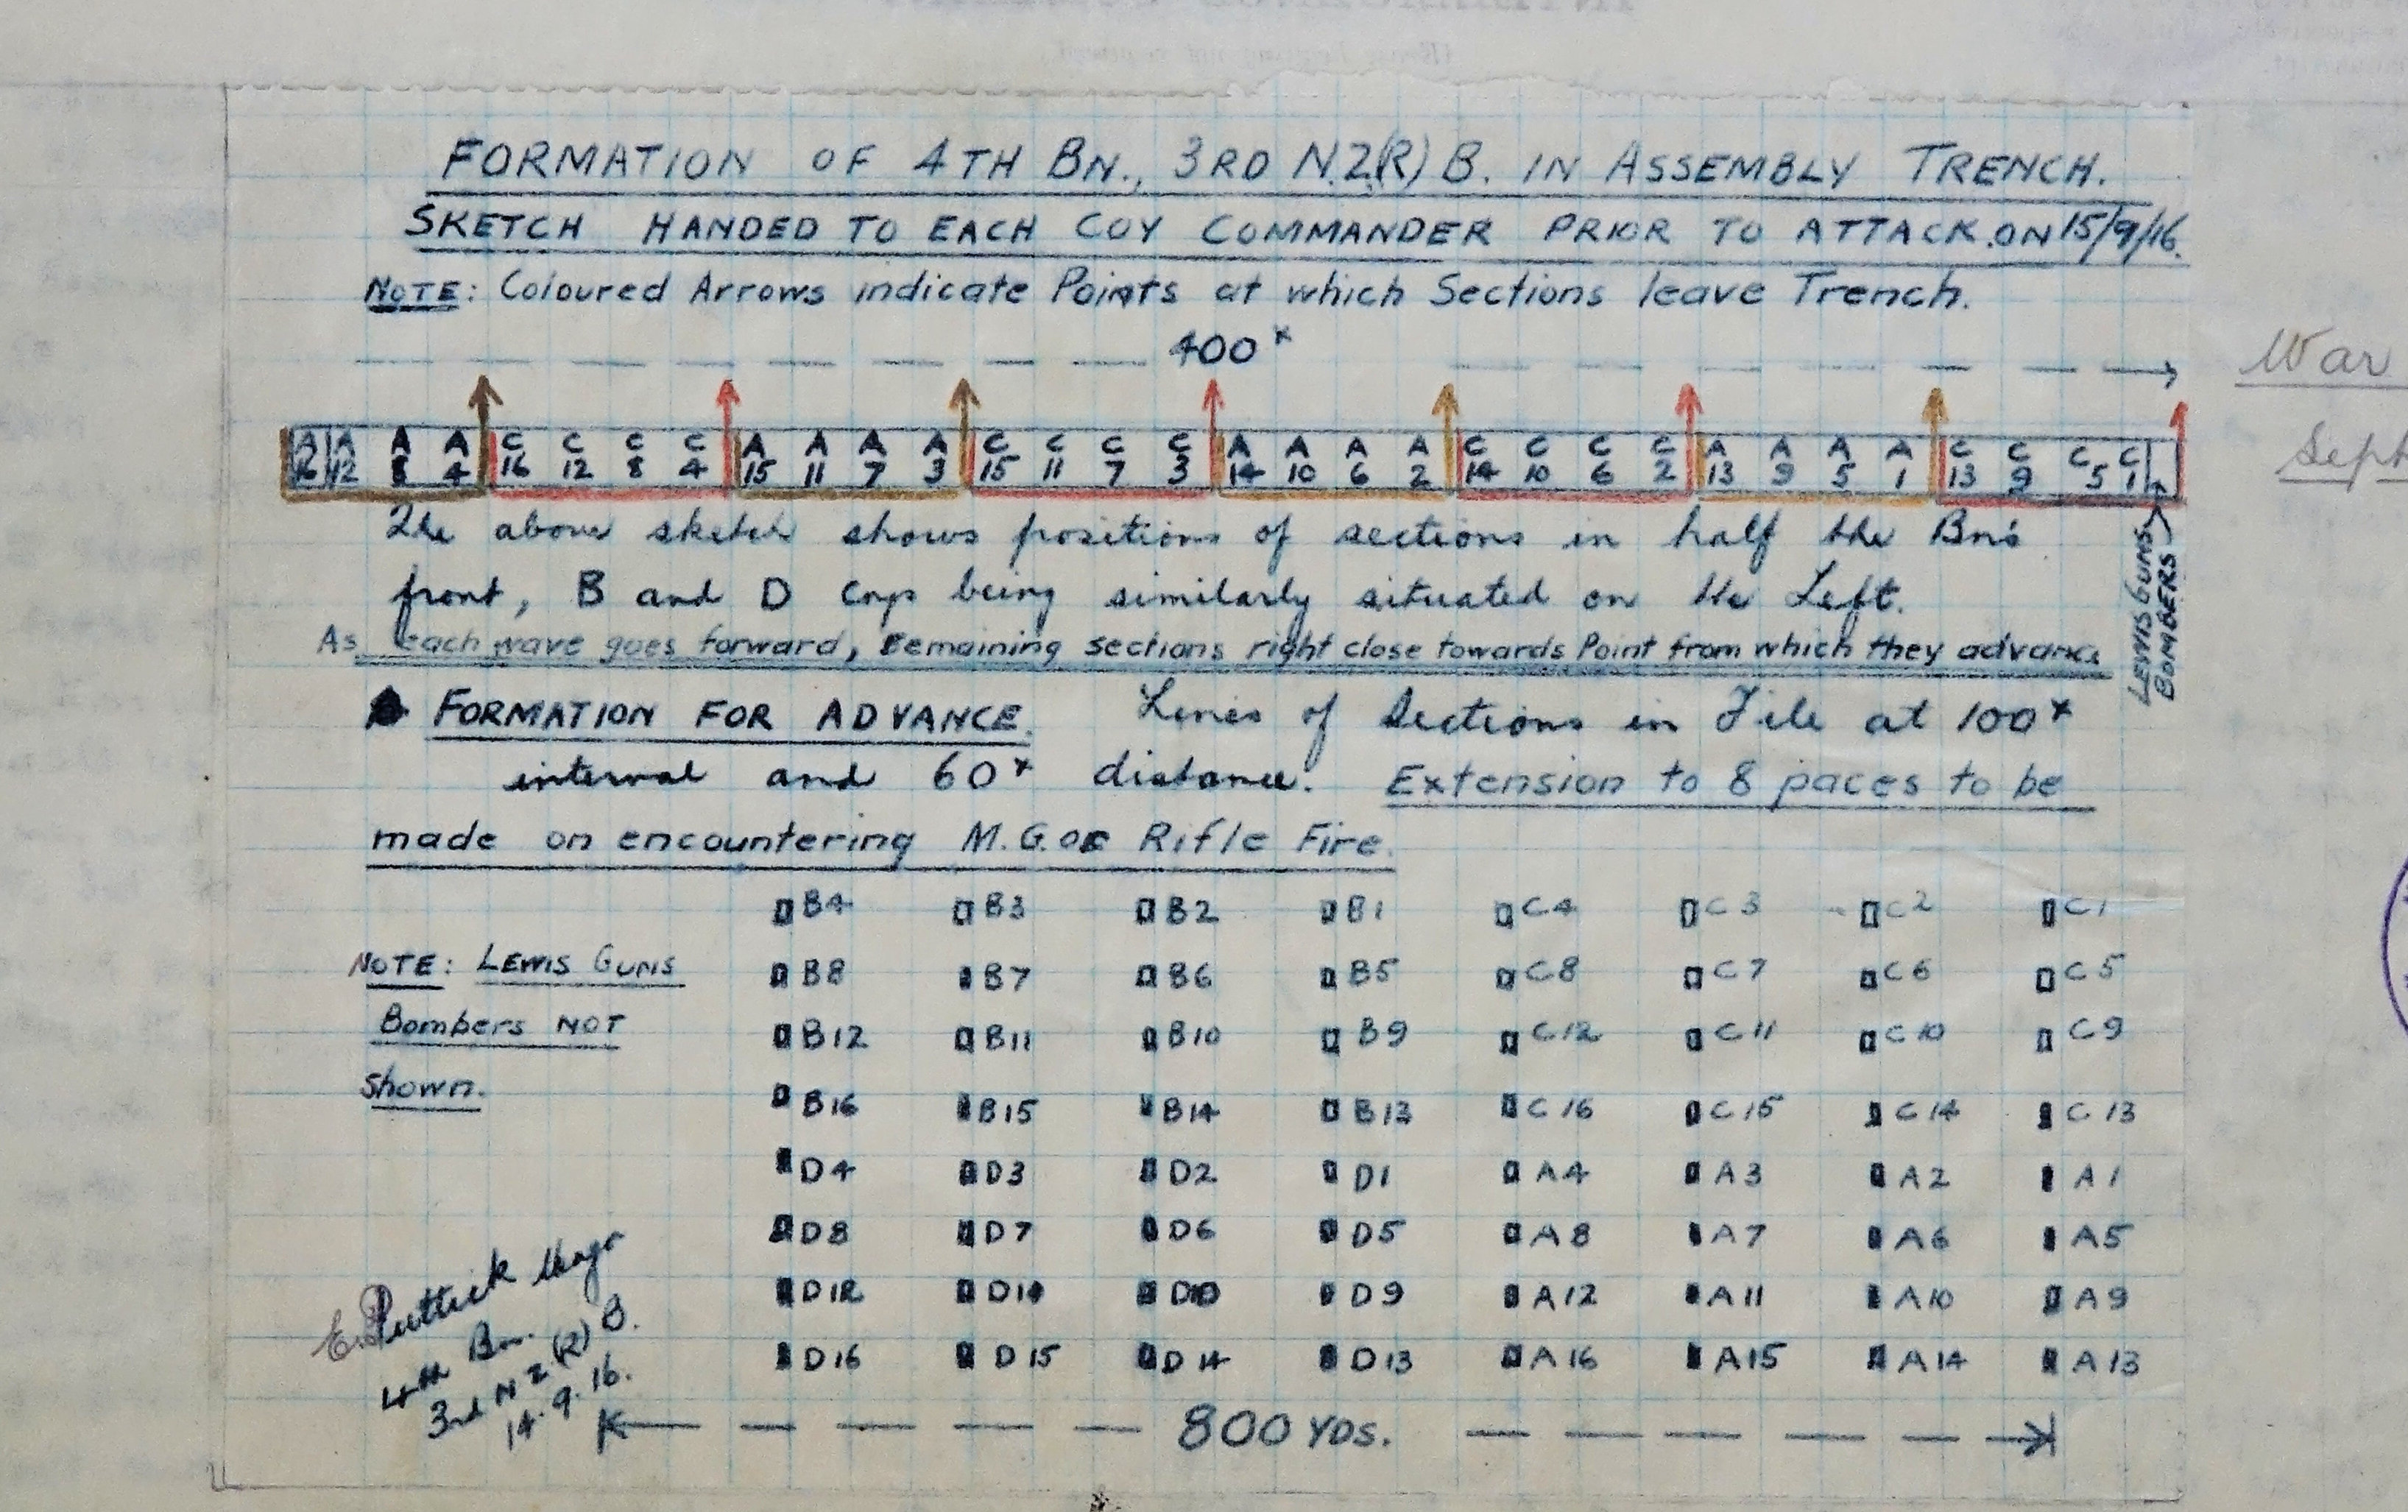 FORMATION OF 4TH BN., 3RD N.Z.(R) B. IN ASSEMBLY TRENCH.
SKETCH HANDED TO EACH COY COMMANDER PRIOR TO ATTACK. ON 15/9/16.
NOTE: Coloured Arrows indicate Points at which Sections leave Trench.
400ˣ
War
A A A A C C C C A A A A C C C C A A A A C C C C A A A A C C C C
16 12 8 4 16 12 8 4 15 11 7 3 15 11 7 3 14 10 6 2 14 10 6 2 13 9 5 1 13 9 5 1
Sept
LEWIS GUNS
BOMBERS
The above sketch shows positions of sections in half the Bn's
front, B and D Coys being similarly situated on the Left.
As each wave goes forward, Remaining sections right close towards Point from which they advance
FORMATION FOR ADVANCE. Lines of Sections in File at 100ˣ
interval and 60ˣ distance. Extension to 8 paces to be
made on encountering M.G. or Rifle Fire.
B4 B3 B2 B1 C4 C3 C2 C1
NOTE: LEWIS GUNS
B8 B7 B6 B5 C8 C7 C6 C5
Bombers NOT
B12 B11 B10 B9 C12 C11 C10 C9
Shown.
B16 B15 B14 B13 C16 C15 C14 C13
D4 D3 D2 D1 A4 A3 A2 A1
D8 D7 D6 D5 A8 A7 A6 A5
D12 D11 D10 D9 A12 A11 A10 A9
D16 D15 D14 D13 A16 A15 A14 A13
E. Puttick Major
4th Bn.
3rd N Z (R) B.
14. 9. 16.
800 YDS.